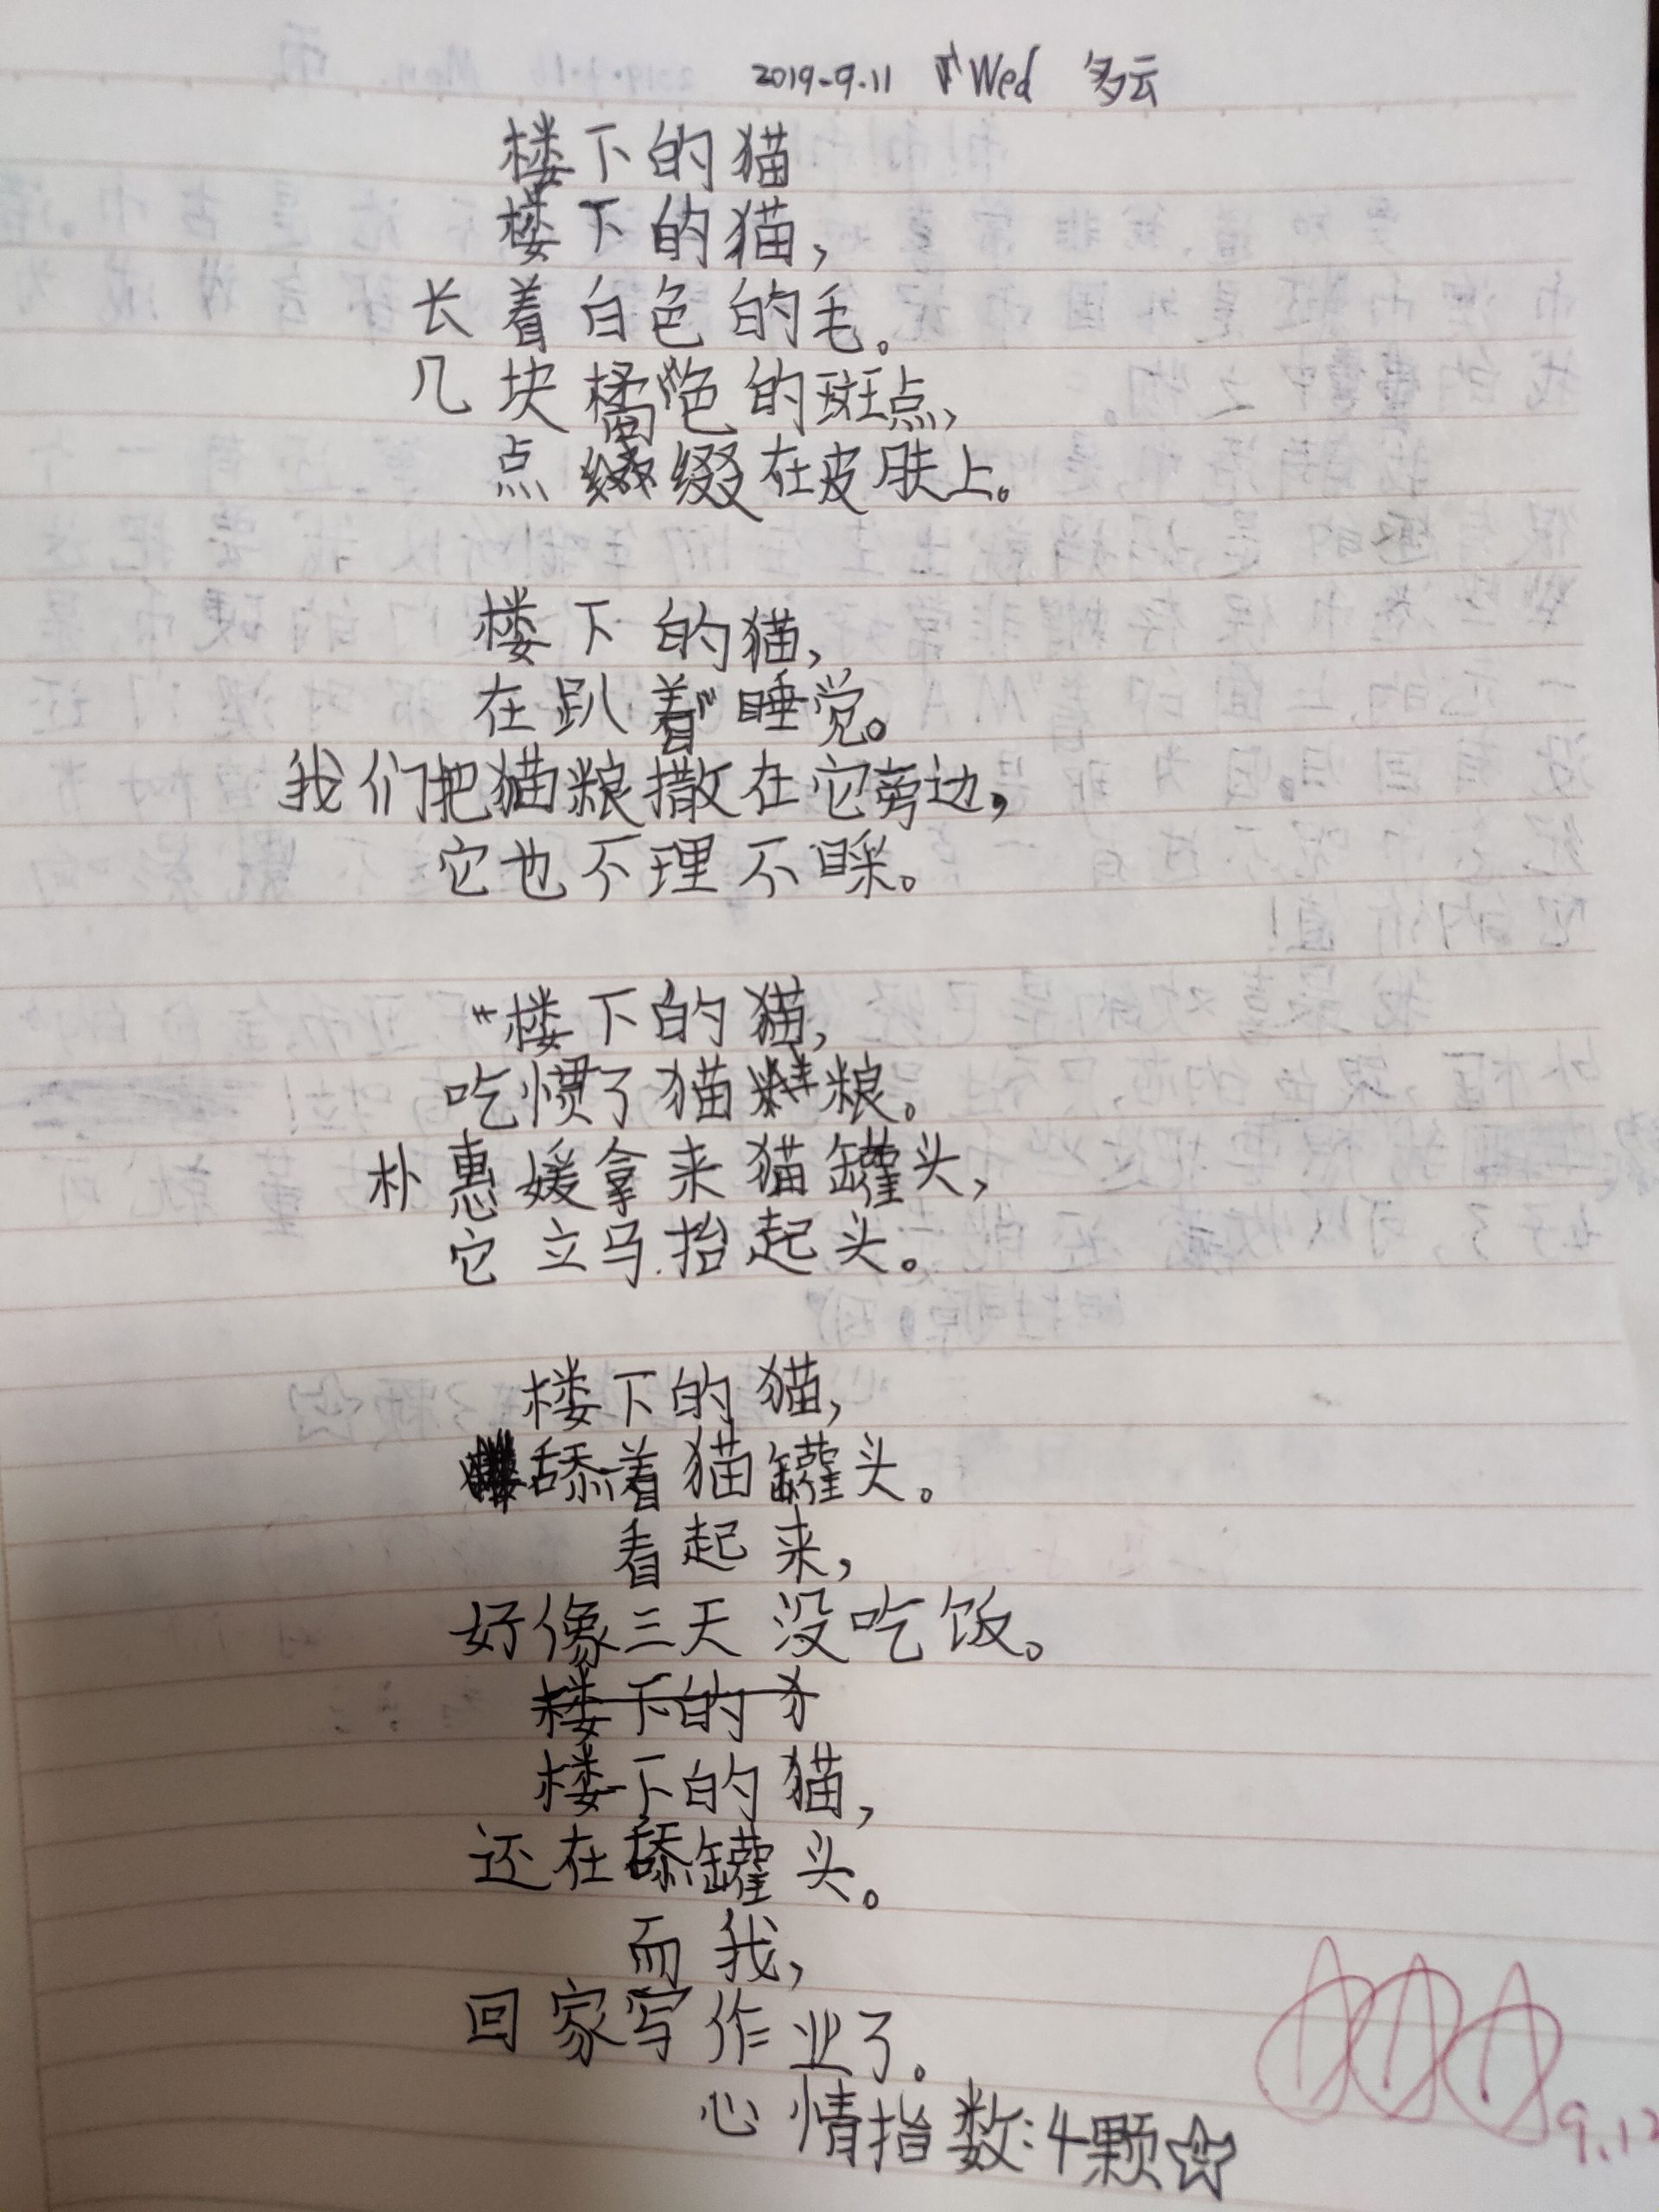 2019-9.11 Wed 多云
楼下的猫
楼下的猫，
长着白色的毛。
几块橘色的斑点，
点缀在皮肤上。
楼下的猫，
在趴着睡觉。
我们把猫粮撒在它旁边，
它也不理不睬。
楼下的猫，
吃惯了猫粮。
朴惠媛拿来猫罐头，
它立马抬起头。
楼下的猫，
舔着猫罐头。
看起来，
好像三天没吃饭。
楼下的犭
楼下的猫，
还在舔罐头。
而我，
回家写作业了。
心情指数：4颗☆
AAA
9.12